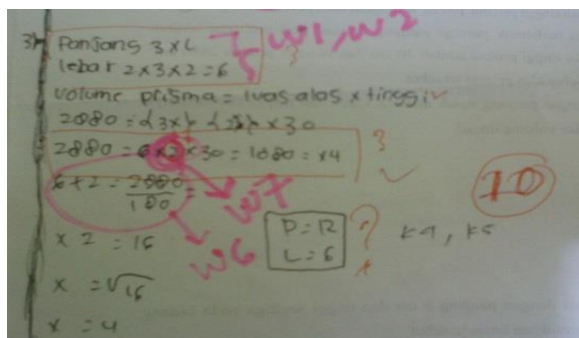 3) Panjang 3 x L
lebar 2 x 3 x 2 = 6
W1, W2
?
Volume prisma = luas alas x tinggi
2880 = (3x) (2x) x 30
2880 = 6x2 x 30 = 1080 = x4
3
6x2 = 2880/180 =
W7
W6
10
x 2 = 16
x = √16
x = 4
P = 12
L = 6
?
K4, K5